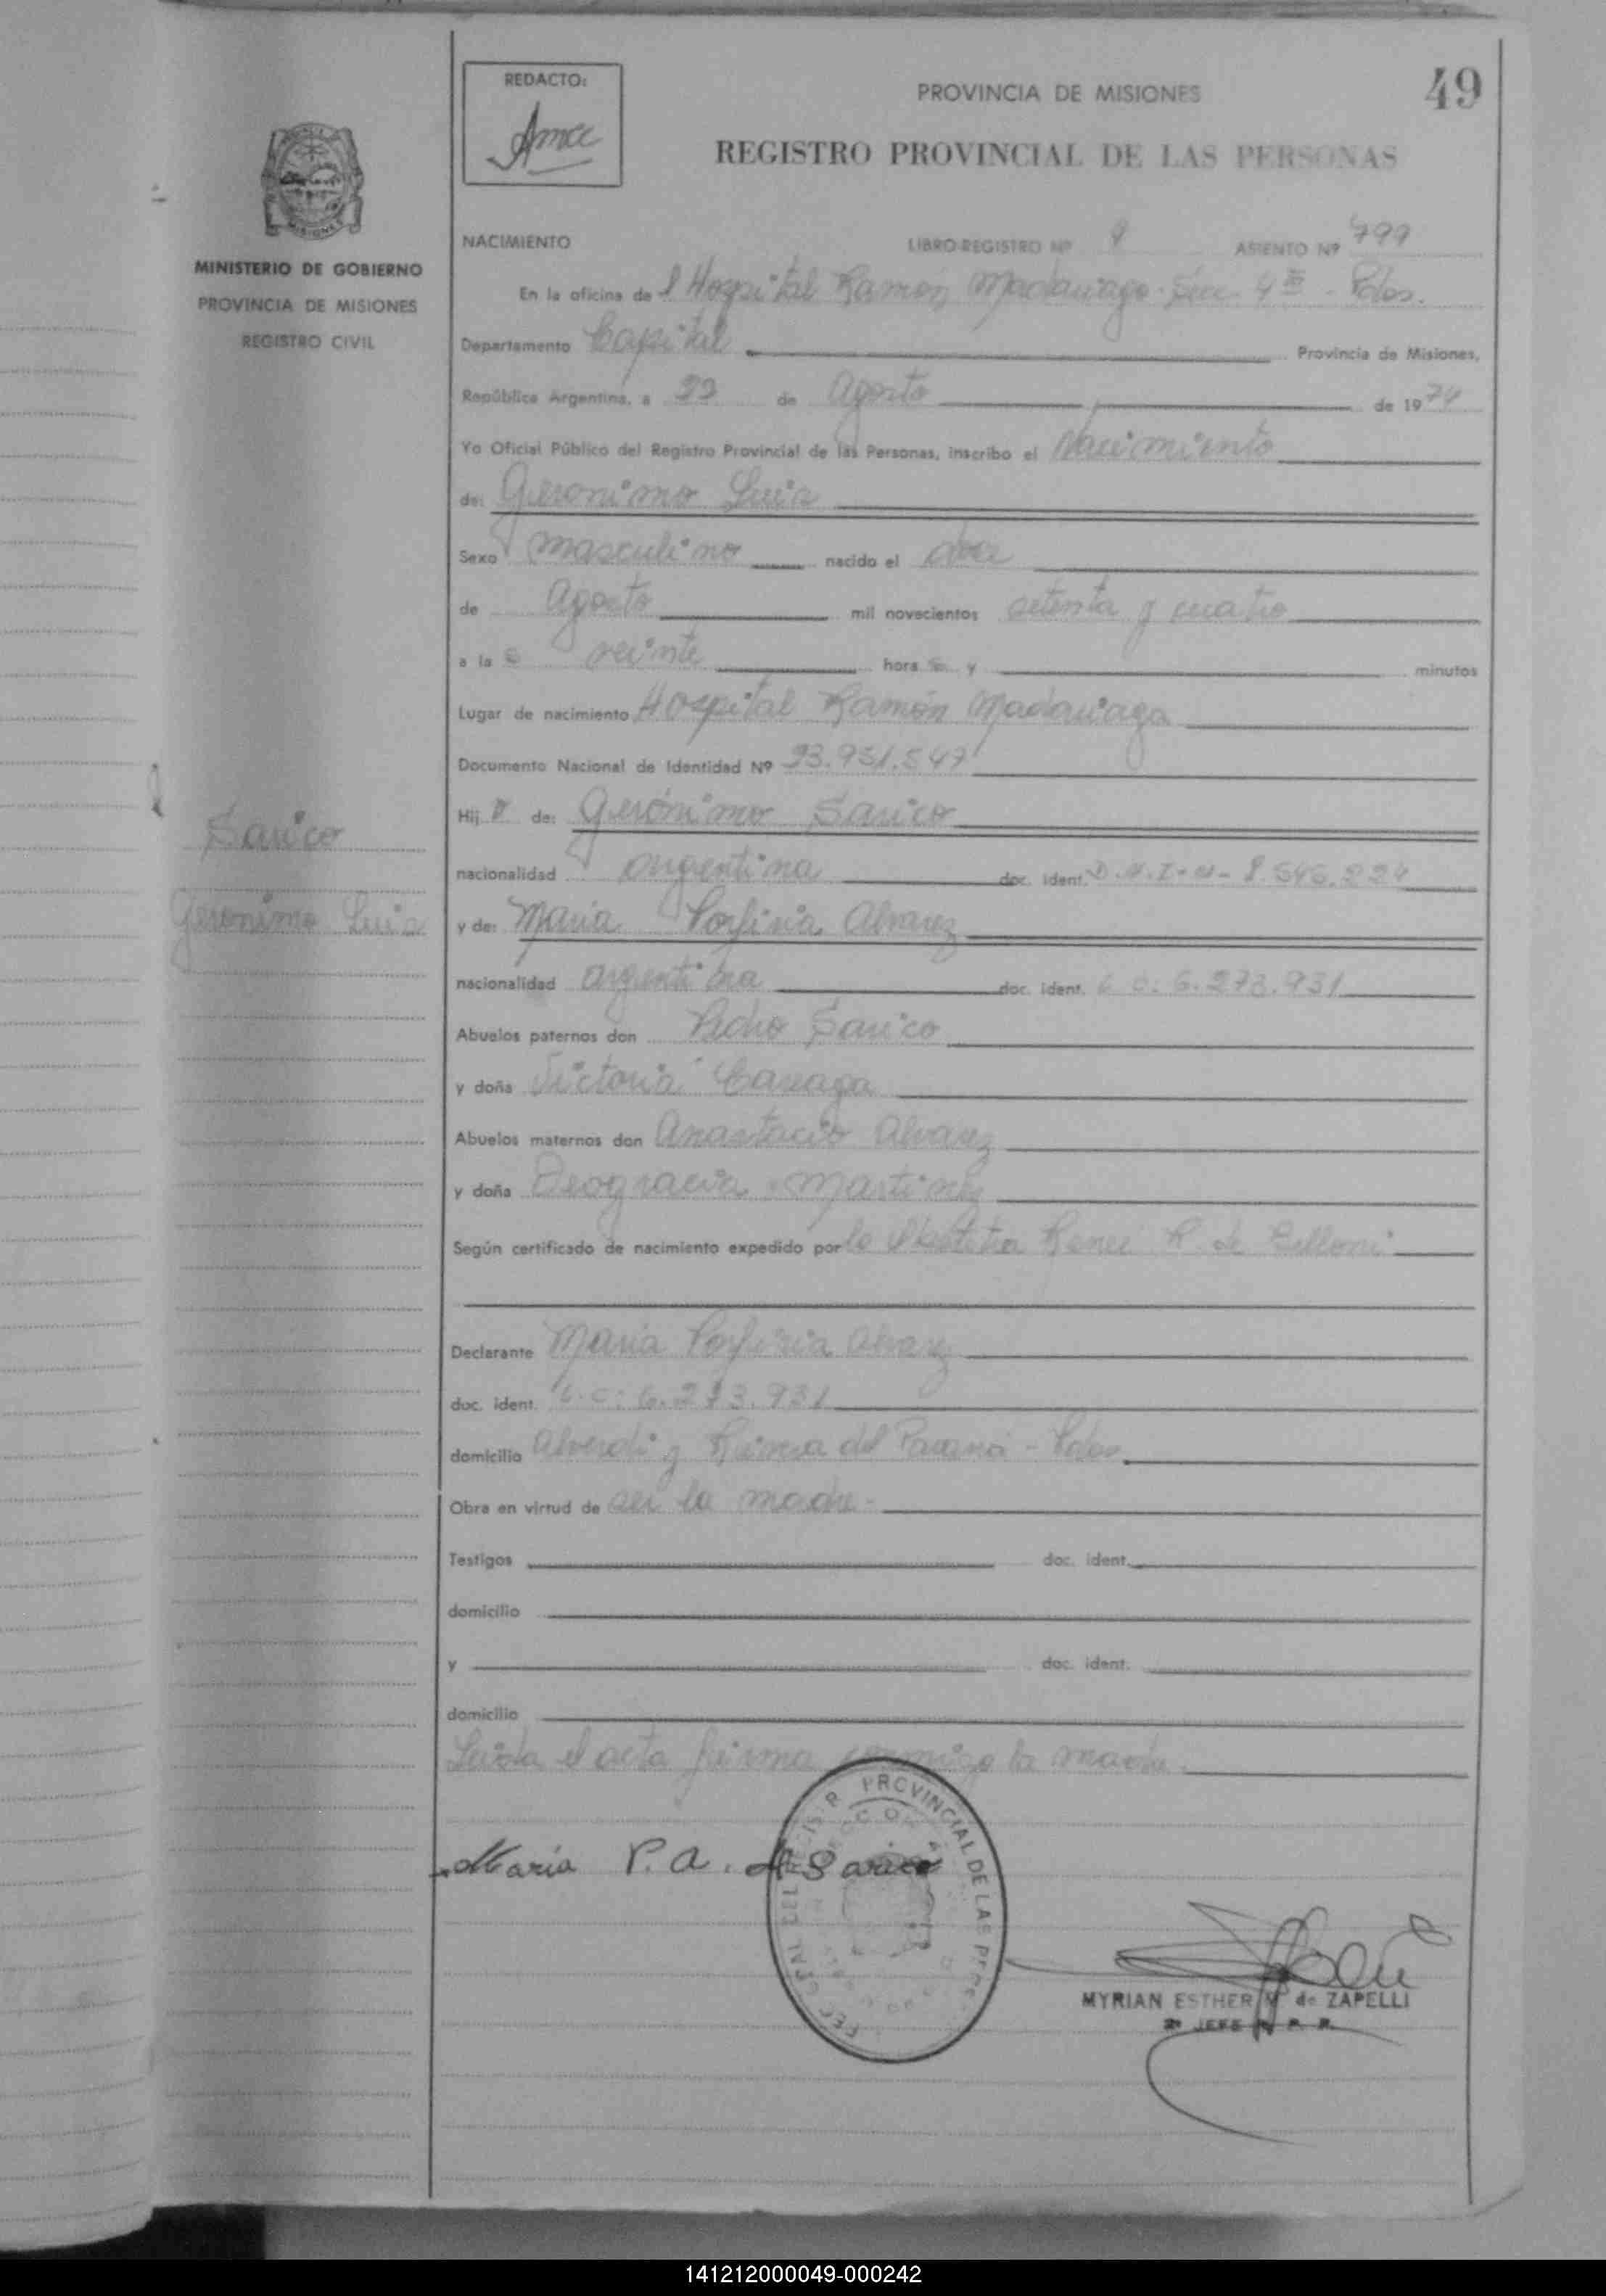 REDACTO:
PROVINCIA DE MISIONES
49
REGISTRO PROVINCIAL DE LAS PERSONAS
MINISTERIO DE GOBIERNO
PROVINCIA DE MISIONES
REGISTRO CIVIL
NACIMIENTO LIBRO-REGISTRO Nº ASIENTO Nº 799
En la oficina de l Hospital Ramón Madariaga 4 Pdas.
Departamento Capital Provincia de Misiones,
República Argentina, a 22 de Agosto de 1974
Yo Oficial Público del Registro Provincial de las Personas, inscribo el Nacimiento
de: Geronimo Luis
Sexo masculino nacido el doce
de Agosto mil novecientos setenta y cuatro
a las veinte horas y minutos
Lugar de nacimiento Hospital Ramón Madariaga
Documento Nacional de Identidad Nº 23.951.547
Hijo de: Gerónimo Sarico
nacionalidad argentina doc. ident. D.N.I. 8.546.224
Sarico
Geronimo Luis
y de: Maria Porfiria Alvarez
nacionalidad argentina doc. ident. L.C: 6.273.931
Abuelos paternos don Pedro Sarico
y doña Victoria
Abuelos maternos don Anastacio Alvarez
y doña Deogracia Martinez
Según certificado de nacimiento expedido por la Obstetra Renee R. de
Declarante Maria Porfiria Alvarez
doc. ident. L.C: 6.273.931
domicilio Alverdi y Reina del Paraná - Pdas.
Obra en virtud de ser la madre-
Testigos doc. ident.
domicilio
y doc. ident.
domicilio
Leida el acta firma conmigo la madre.
PROVINCIAL DE LAS PERS
Maria P. A. d Sarico
MYRIAN ESTHER de ZAPELLI
2º JEFE R. P. P.
141212000049-000242